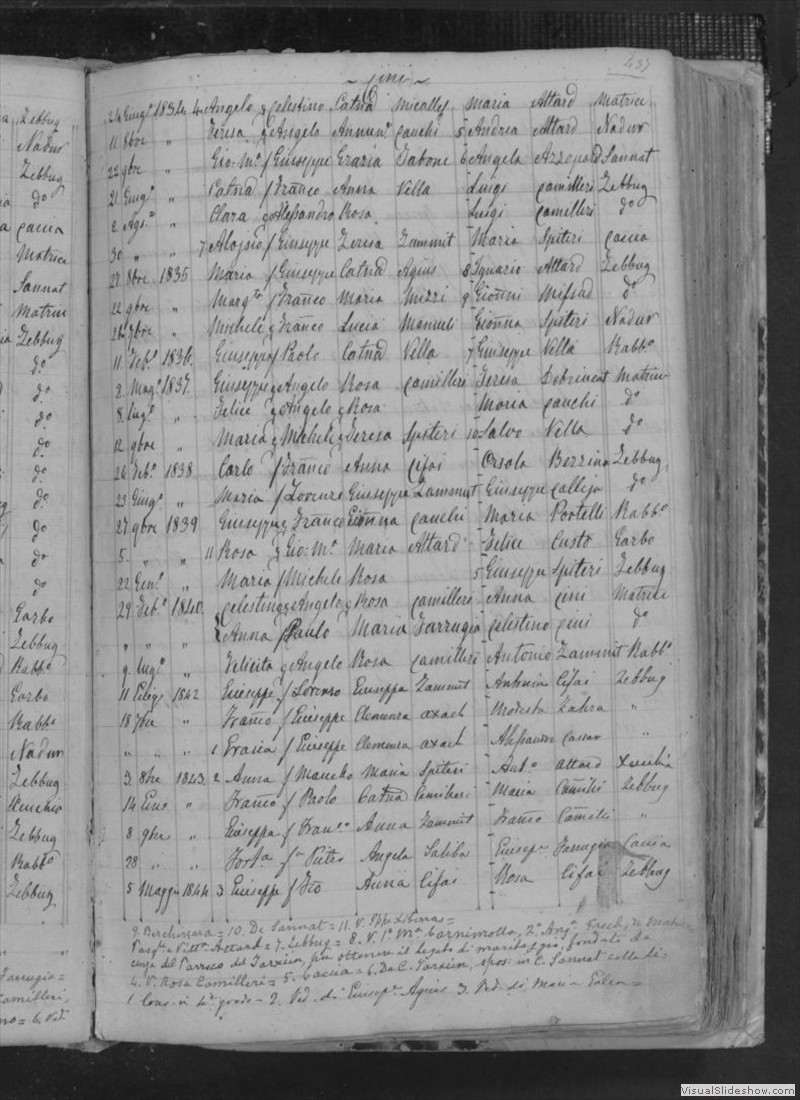 437
~ Cini ~
24 Giug.º 1834 4 Angelo g Celestino Catnã Micallef Maria Attard Matrice
11. 8bre " Teresa g Angelo Annunª Cauchi 5 Andrea Attard Nadur
22 9bre " Gio: Mª f Giuseppe Grazia Tabone 6 Angela Azzopardi Sannat
21 Giug.º " Catnã f Franco Anna Vella Luigi Camilleri Zebbug
2 Ags.º " Clara g Alessandro Rosa Luigi Camilleri dº
30 " " 7 Aloisio f Giuseppe Teresa Zammit Maria Spiteri Caccia
27 8bre 1835 Maria f Giuseppe Catnã Agius 8 Ignazio Attard Zebbug
22 9bre " Margta f Franco Maria Mizzi 9 Gionni Mifsud dº
9bre " Michele g Franco Lucia Manueli Gionna Spiteri Nadur
11. Feb.º 1836. Giuseppe g Paolo Catnã Vella 7 Giuseppe Vella Rabb.º
2. Mag.º 1837. Giuseppe g Angelo Rosa Camilleri Teresa Debrincat Matrice
8. Lug.º " Felice g Angelo g Rosa Maria Cauchi dº
12 9bre " Maria g Michele g Teresa Spiteri 10 Salvo Vella dº
Feb.º 1838 Carlo f Franco Anna Cifai Orsola Bezzina Zebbug
23 Giug.º " Maria f Lorenzo Giuseppa Zammit Giuseppe Calleja dº
27. 9bre 1839 Giuseppe g Franco Gionna Cauchi Maria Portelli Rabb.º
5. " " 11 Rosa g Gio: Mª Maria Attard Felice Custò Garbo
22 Gen.º " Maria f Michele Rosa 5 Giuseppe Spiteri Zebbug
29. Feb.º 1840. Celestino g Angelo g Rosa Camilleri Anna Cini Matrice
" " " Anna f Paulo Maria Farrugia Celestino Cini dº
9 Lug.º " Felicita g Angelo Rosa Camilleri Antonio Zammit Rabb.º
11 1842 Giuseppe f Lorenzo Giuseppa Zammit Antonia Cifai Zebbug
18 7bre " Franco f Giuseppe Clemenza Axach Modesta Zahra "
" " " 1 Grazia f Giuseppe Clemenza Axach Alessandro Cassar "
3. 8bre 1843. 2 Anna f Marcello Maria Spiteri Ant.º Attard Xeuchia
14 " Franco f Paolo Catnã Camilleri Maria Camilleri Zebbug
8 9bre " Giuseppa f Fran.co Anna Zammit Franco Camilleri "
28 " " Fort.ta f Pietro Angela Saliba Giusep.e Farrugia Caccia
5 Maggio 1844 3 Giuseppe f Anna Cifai Rosa Cifai Zebbug
9. Birchircara = 10. De Sannat = 11. V.
Attard = 7. Zebbug = 8. V. 1º Mª Carnimolla, 2º
del Parroco del Tarxien, per ottenere il legato di maritaggio, fondato da
4. V. Rosa Camilleri = 5. Caccia = 6. Da C. Tarxien, spos: in C. Sannat colla li=
1 Cons. in 4º grado = 2. Ved. di Giusep.e Agius 3. Ved. di Maria
Zebbug
Nadur
Zebbug
dº
Caccia
Matrice
Sannat
Matrice
Zebbug
dº
dº
dº
dº
dº
dº
dº
dº
dº
Garbo
Zebbug
Rabb.º
Garbo
Rabb.º
Nadur
Zebbug
Zebbug
Rabb.º
Zebbug
Farrugia =
Camilleri,
= 6. Ved.
VisualSlideshow.com